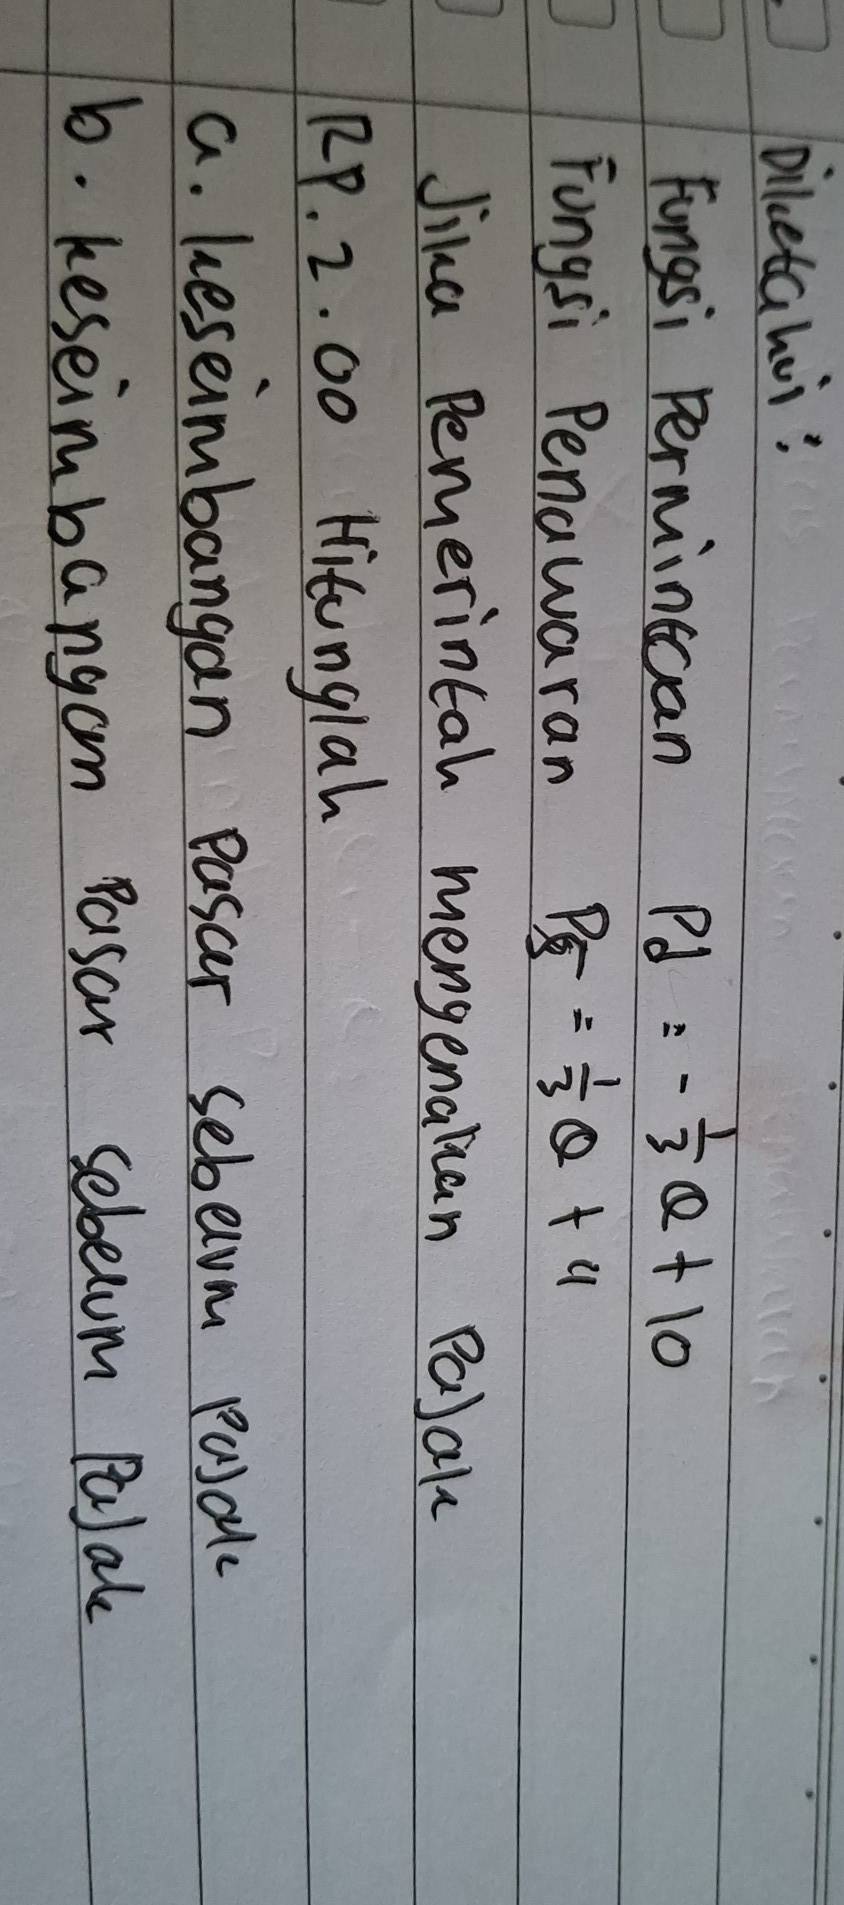 Diketahui :
Fungsi Permintaan Pd = - 1/3 Q + 10
Fungsi Penawaran Ps = 1/3 Q + 4
Jika Pemerintah mengenakan Pajak
RP. 2.00 Hitunglah
a. keseimbangan Pasar sebelum Pajak
b. keseimbangan Pasar sebelum Pajak